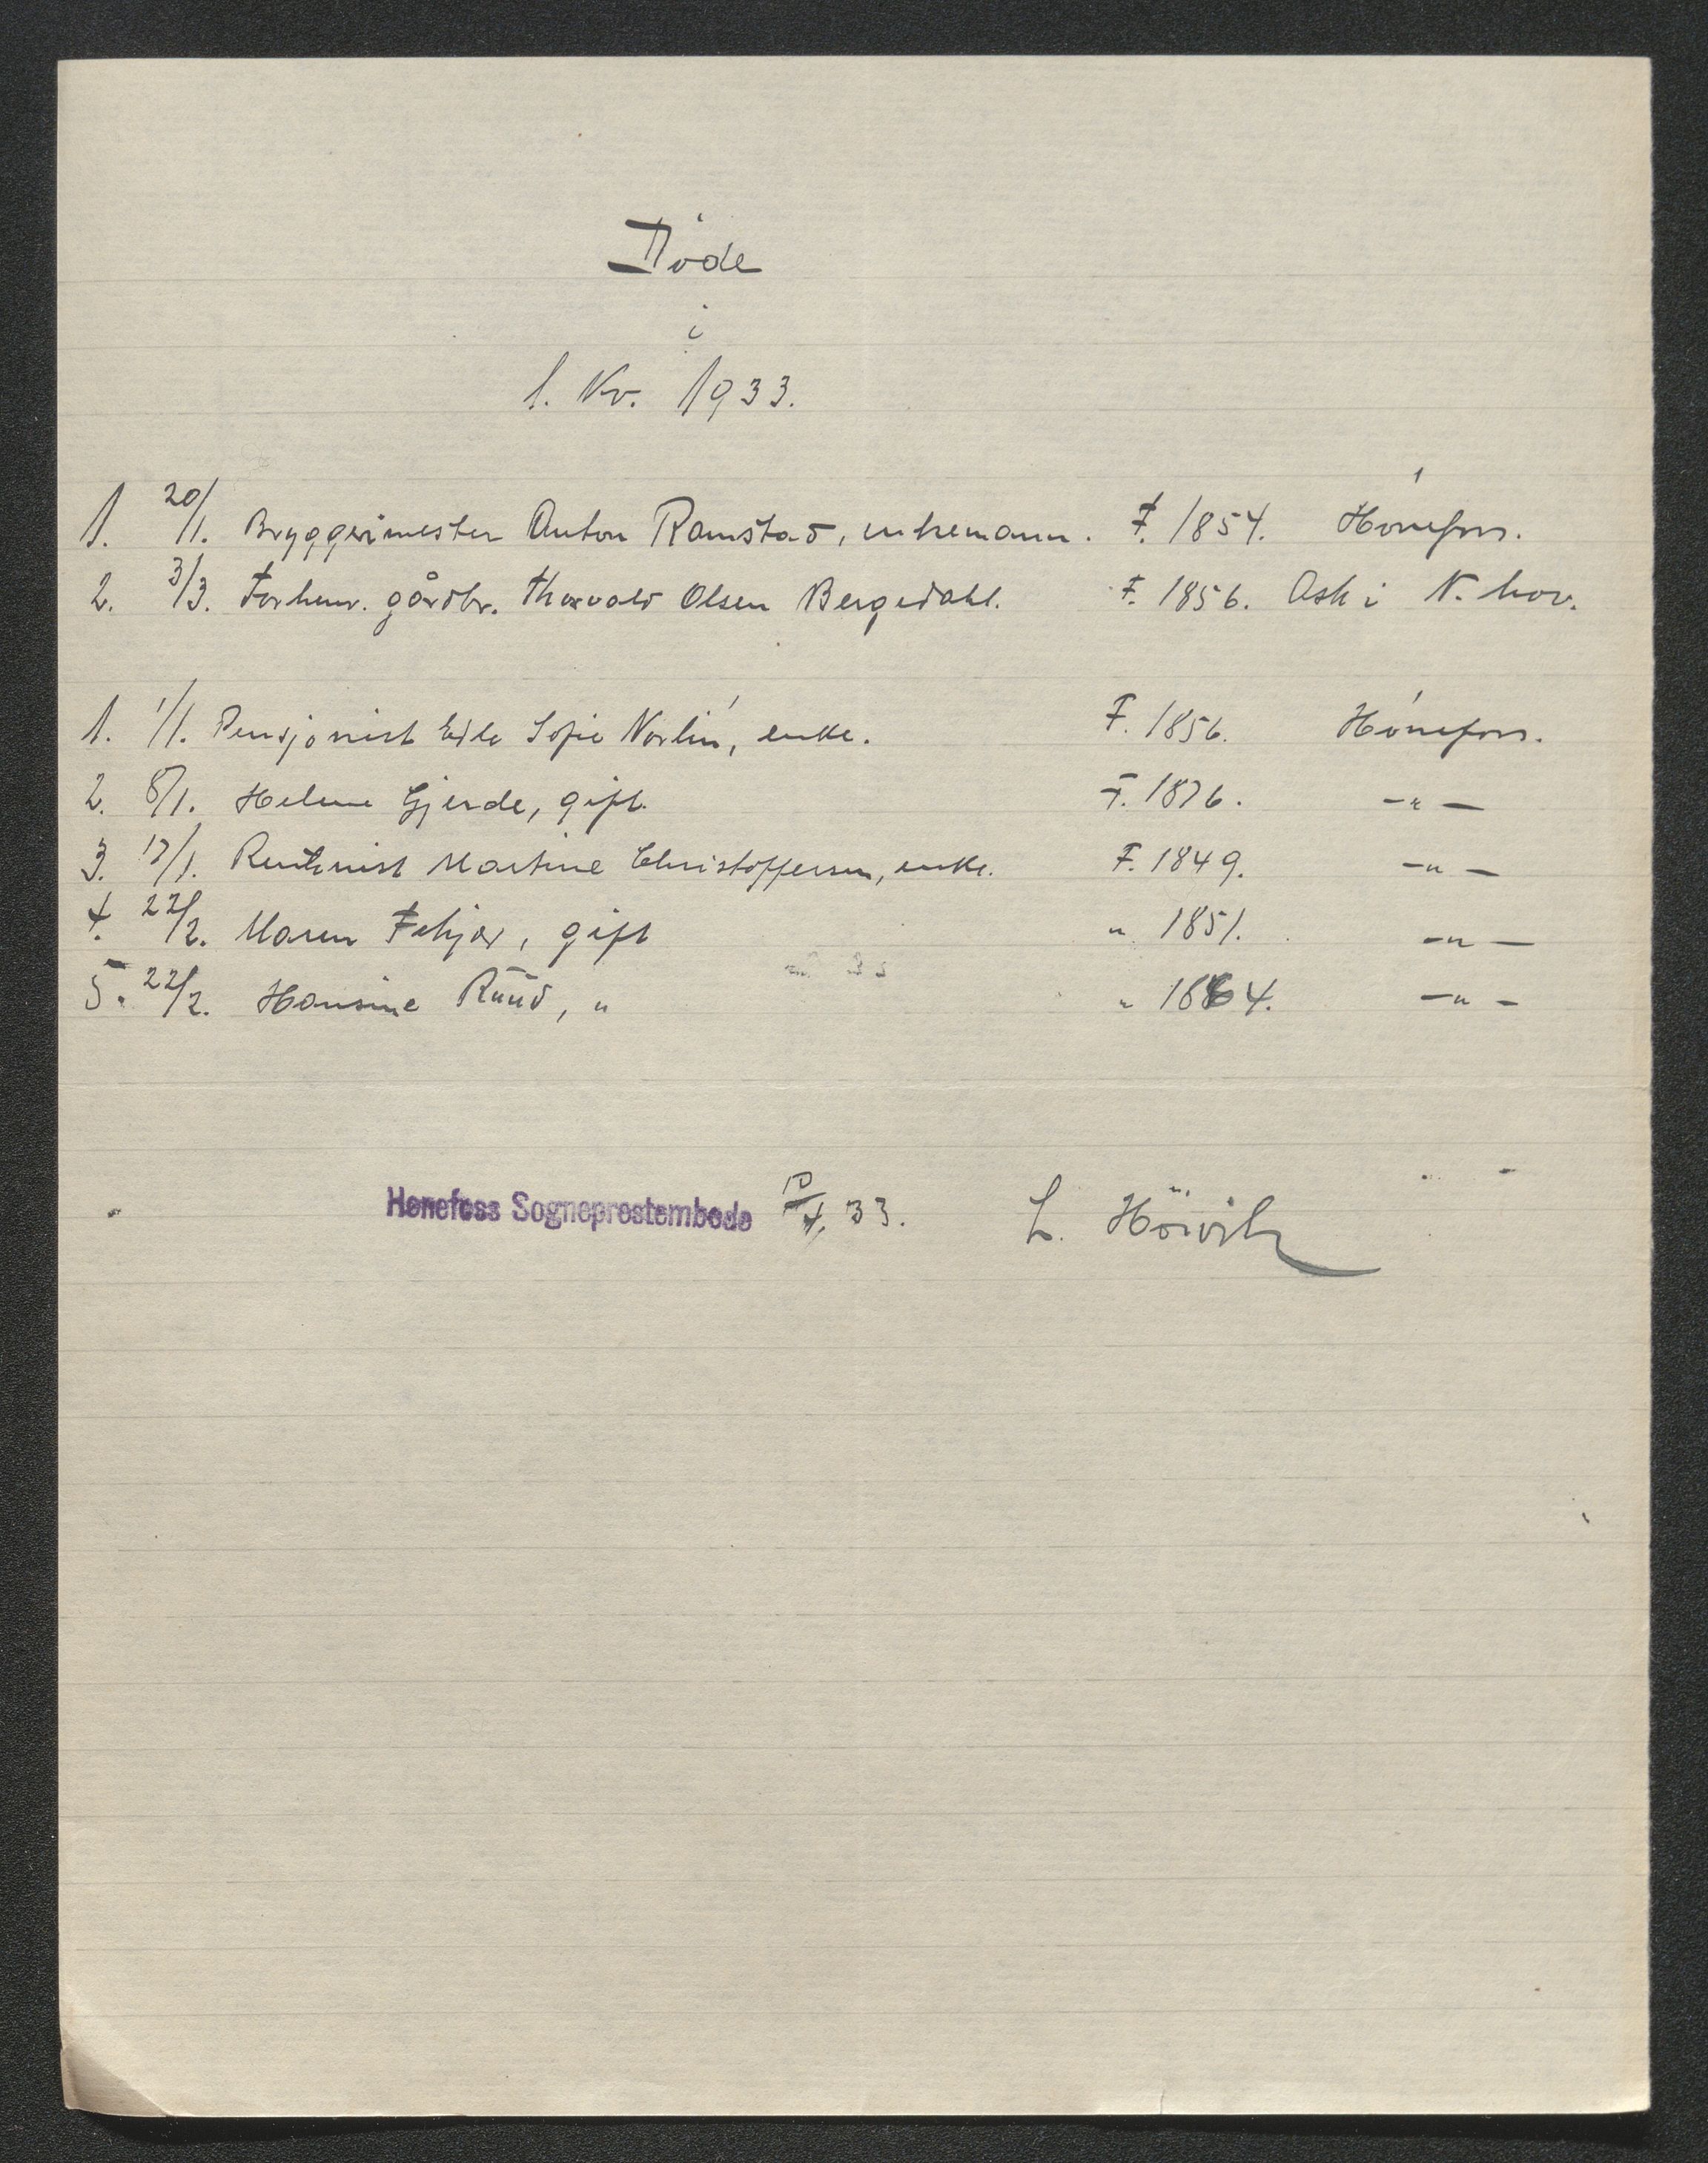 Døde
i
1. Kv. 1933.
1. 20/1. Bryggerimester Anton Ramstad, enkemann. F. 1854. Hönefoss.
2. 3/3. Forhenv. gårdbr. Thorvald Olsen Bergedahl. F. 1856. Ask i N.hov.
1. 1/1. Pensjonist Edle Sofie Norlin, enke. F. 1856. Hönefoss.
2. 8/1. Helene Gjerde, gift. F. 1876. -"-
3. 17/1. Rentenist Martine Christoffersen, enke. F. 1849. -"-
4. 22/2. Maren Fekjær, gift " 1851. -"-
5. 22/2. Hansine Ruud, " " 1864. -"-
Hønefoss Sogneprestembede /4. 33. L. Höivik